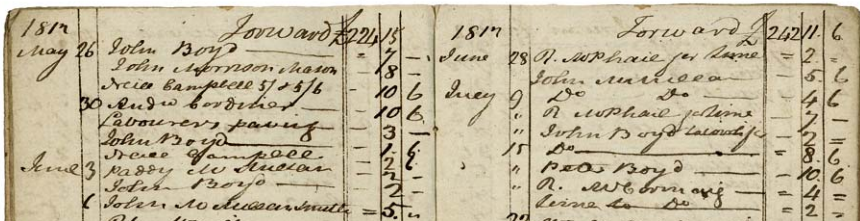 1817 Forward £224 15
May 26 John Boyd = 7 -
John Morrison Mason = 8 -
Neill Campbell 5/ & 5/6 10 6
30 Andw Gardiner 10 6
Labourers paving 3 -
John Boyd
Neill Campbell 1. 6
June 3 Paddy Mc 2 6
John Boyd 2 -
6 John McMillan Smith = 5. "
1817 Forward £242 11. 6
June 28 R. McPhail for lime = 2 =
John McMillan 5 6
July 9 Do Do 4 6
" R McPhail for lime 7 -
" John Boyd 2 =
15 Do = 8. 6
" Peter Boyd 10. 6
" R. McCormaig = 4 =
lime to Do = 2 =
22